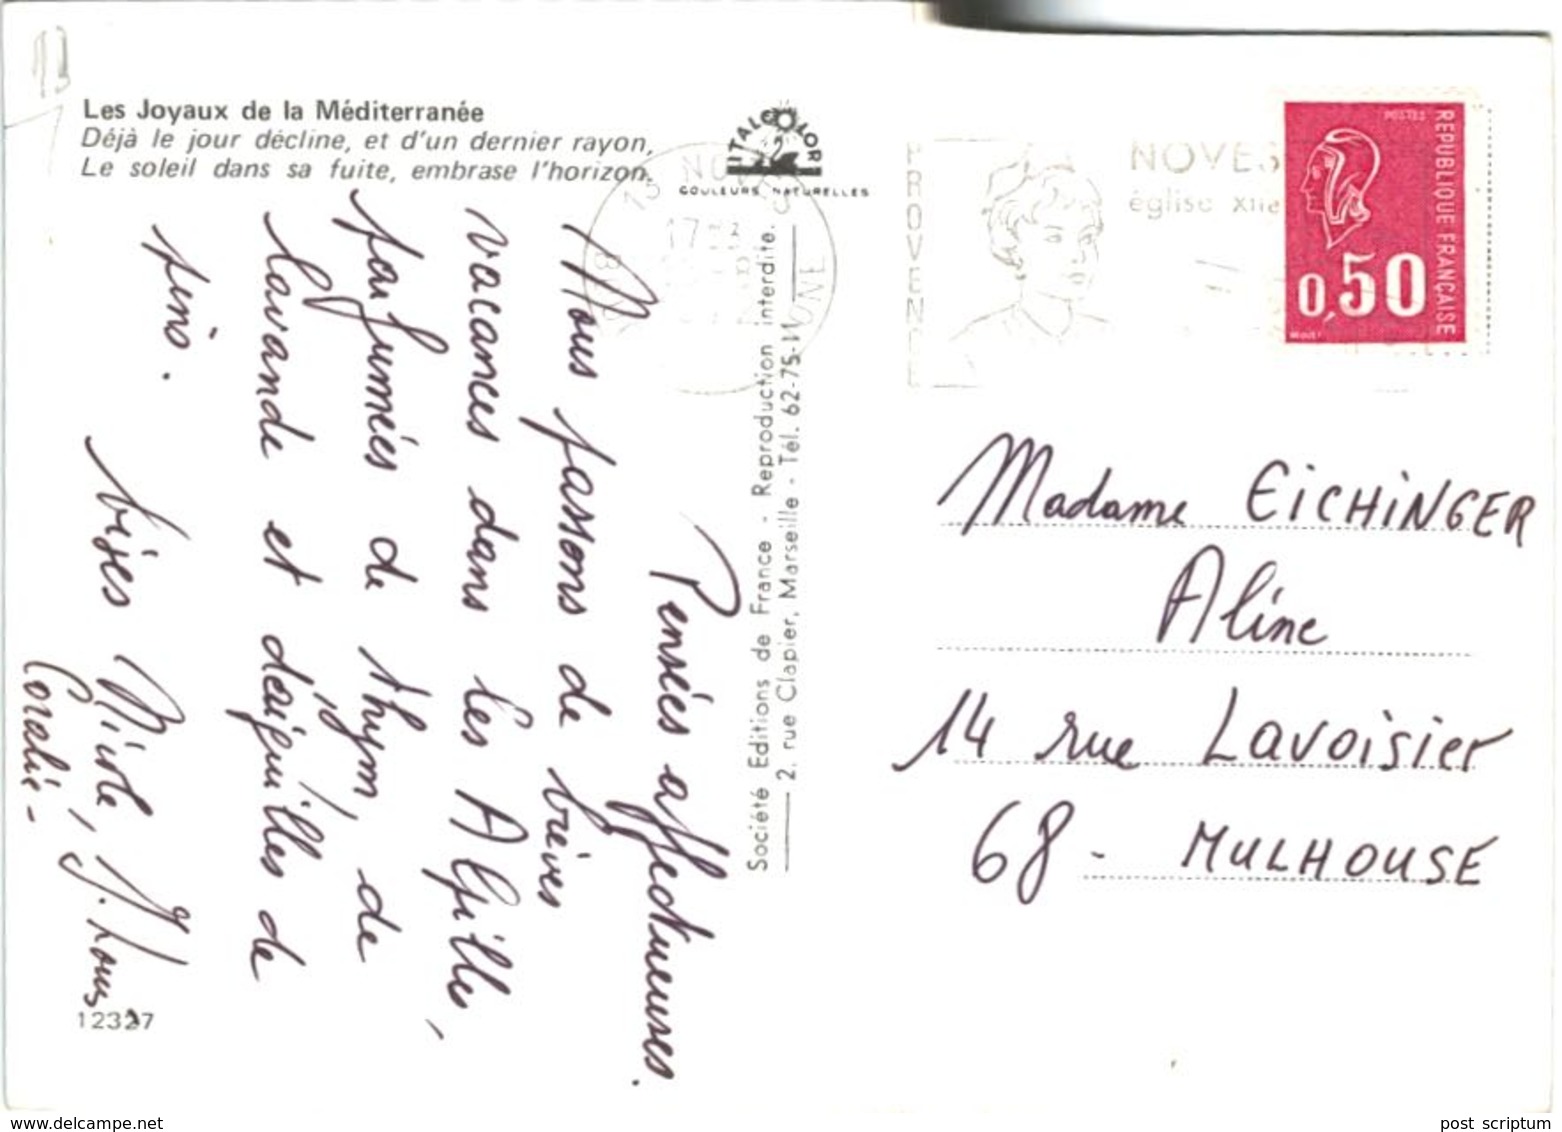 13
Les Joyaux de la Méditerranée
Déjà le jour décline, et d'un dernier rayon,
Le soleil dans sa fuite, embrase l'horizon.
ITALCOLOR
COULEURS NATURELLES
Pensées affectueuses.
Nous passons de brèves
vacances dans les Alpilles,
parfumées de thym, de
lavande et d'aiguilles de
pins.
bises Nicole, J. Louis
Coralie -
12327
Société Editions de France - Reproduction interdite.
2, rue Clapier, Marseille - Tél. 62-75-
13 NOVES
17 H
RHONE
PROVENCE
NOVES
église XIIe
POSTES
REPUBLIQUE FRANÇAISE
0,50
Madame EICHINGER
Aline
14 rue Lavoisier
68 - MULHOUSE
post scriptum
www.delcampe.net